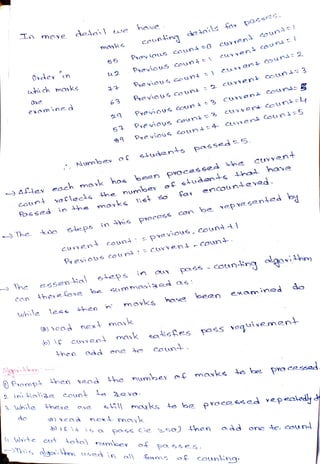 In more detail we have.
marks counting details for passes.
55 Previous count=0 current count=1
Order in 42 Previous count=1 current count=1
which marks 27 Previous count=1 current count=2
are 63 Previous count=2 current count=3
examined 29 Previous count=3 current count=3
57 Previous count=3 current count=4
89 Previous count=4 current count=5
∴ Number of students passed=5.
→ After each mark has been processed the current
count reflects the number of students that have
passed in the marks list so far encountered.
→ The two steps in this process can be represented by
current count := previous_count+1
Previous count := current_count.
→ The essential steps in our pass-counting algorithm
can therefore be summarized as:
while less then n marks have been examined do
a) read next mark
b) if current mark satisfies pass requirement
then add one to count.
Algorithm:-
① Prompt then read the number of marks to be processed.
2. initialize count to zero.
3. while there are still marks to be processed repeatedly
do
a) read next mark
b) if it is a pass (ie ≥50) then add one to count
4. Write out total number of passes.
→ This algorithm used in all forms of counting.